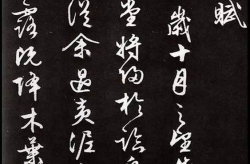 賦
歲十月之望步
堂將歸於臨皋
從余過黃泥
露既降木葉